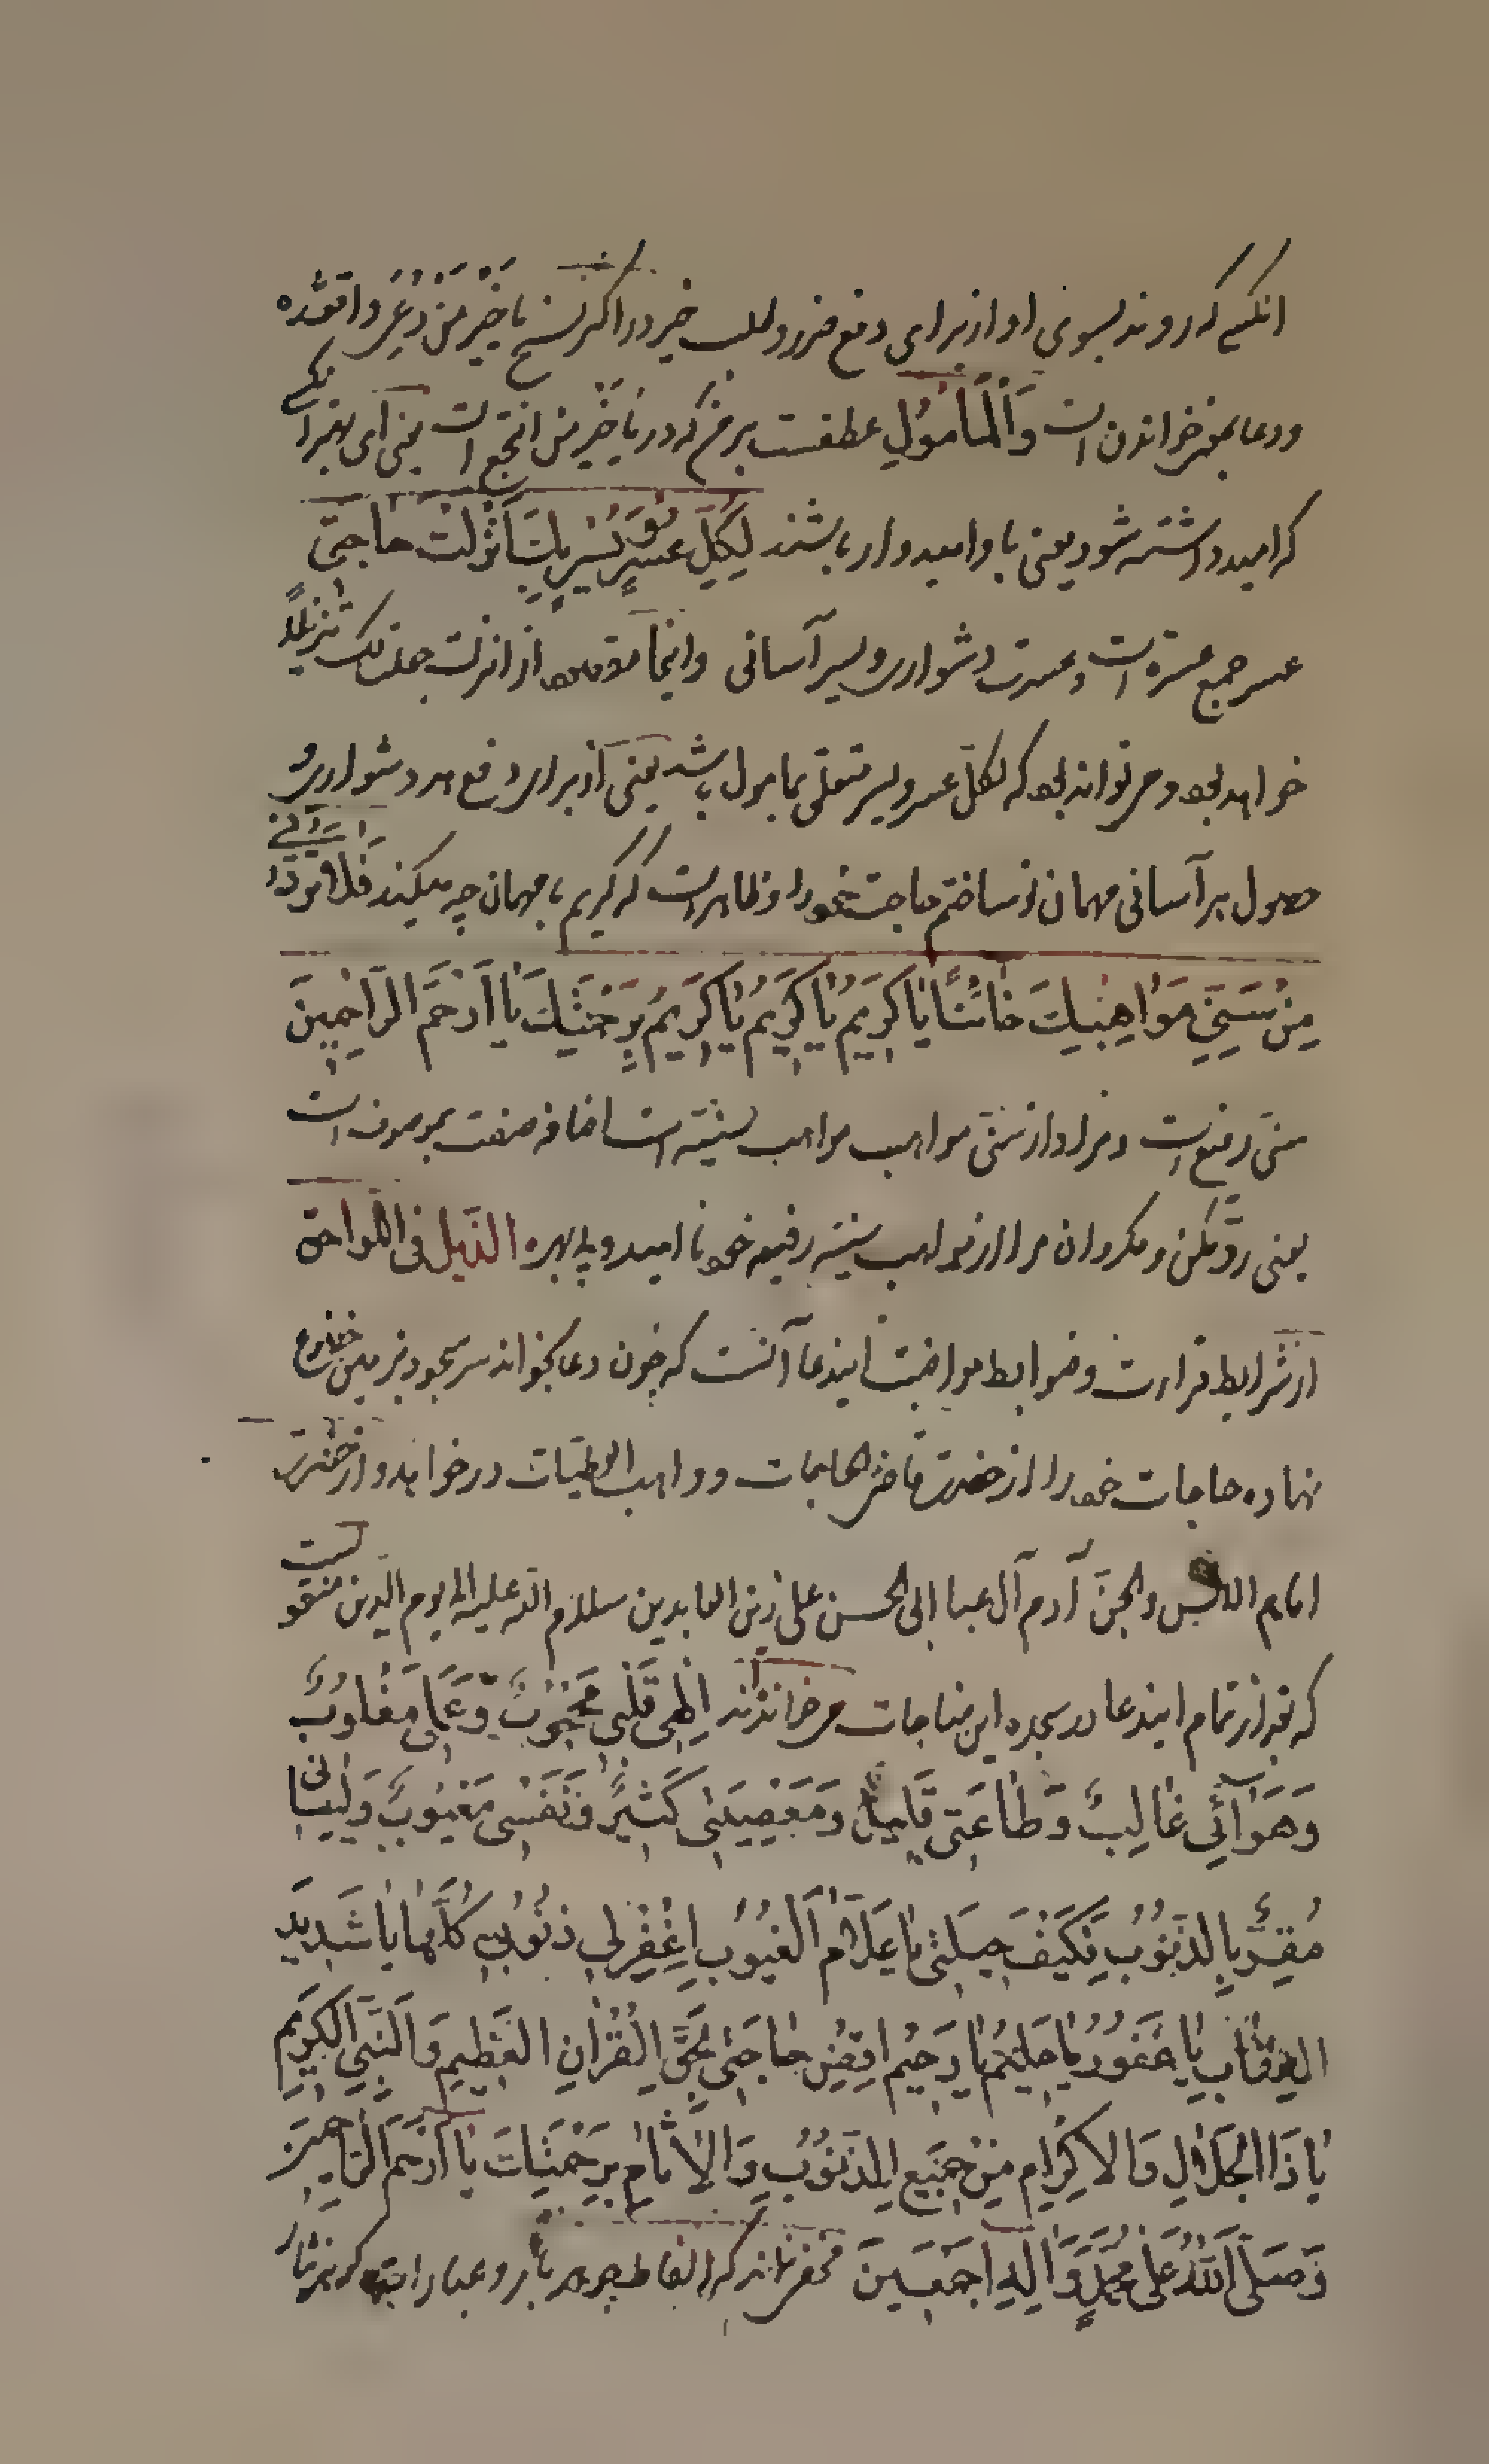 انکسی که روند بسوی او از برای دفع ضرر و طلب خیر و در اکثر نسخ یا خَیرَ مَن دُعِیَ واقعشده
و دعا بمعنی خواندن است وَالْمَأمُولِ عطفست بر من که در یا خَیرَ من انتجع است یعنی ای بهتر انکسی
که امید داشته شود یعنی باو امیدوار باشند لِکُلِّ عُسْرٍ وَیُسْرٍ بِکَ اَنْزَلْتُ حاجَتی
عسر جمع عسرة است و عسرت دشواری و یسر آسانی و اینجا مقصود از انزلت جعلتک نزیلاً
خواهد بود و می تواند بود که لکل عسر و یسر متعلق بمامول باشد یعنی از برای دفع هر دشواری و
حصول هر آسانی مهمان تو ساختم حاجت خود را و ظاهر است که کریم با مهمان چه میکند فَلا تَرُدَّنی
مِنْ سَنِیِّ مَواهِبِکَ خائِبًا یا کَریمُ یا کَریمُ یا کَریمُ بِرَحْمَتِکَ یا اَرْحَمَ الرّاحِمینَ
سنی رفیع است و مراد از سنی مواهب مواهب سنیّه است اضافه صفت بموصوف است
یعنی رد مکن و مگردان مرا از مواهب سنیه رفیعه خود نا امید و بی بهره الذَّیل فی اللّواحق
از شرایط قراءت و ضوابط مواظبت ایندعا آنست که چون دعا بخواند سر بسجود بزمین خضوع
نهاده حاجات خود را از حضرت قاضی الحاجات و واهب العطیّات در خواهد و از حضرت
امام الانس والجنّ آدم آل عبا ابی الحسن علی زین العابدین سلام الله علیه الی یوم الدّین منقولست
که بعد از تمام ایندعا در سجده این مناجات می خواندند اِلهی قَلْبی مَحْجُوبٌ وَعَقْلی مَغْلُوبٌ
وَهَوائی غالِبٌ وَطاعَتی قَلیلٌ وَمَعْصِیَتی کَثیرٌ وَنَفْسی مَعْیُوبٌ وَلِسانی
مُقِرٌّ بِالذُّنُوبِ فَکَیْفَ حیلَتی یا عَلّامَ الْغُیُوبِ اِغْفِرْ لی ذُنُوبی کُلَّها یا شَدیدَ
الْعِقابِ یا غَفُورُ یا حَلیمُ یا رَحیمُ اقْضِ حاجَتی بِحَقِّ الْقُرْانِ الْعَظیمِ وَالنَّبِیِّ الْکَریمِ
یا ذَا الْجَلالِ وَالْاِکْرامِ مِنْ جَمیعِ الذُّنُوبِ وَالْاثامِ بِرَحْمَتِکَ یا اَرْحَمَ الرّاحِمینَ
وَصَلَّی اللهُ عَلی مُحَمَّدٍ وَالِهِ اَجْمَعینَ مخفی نماند که الفاظ